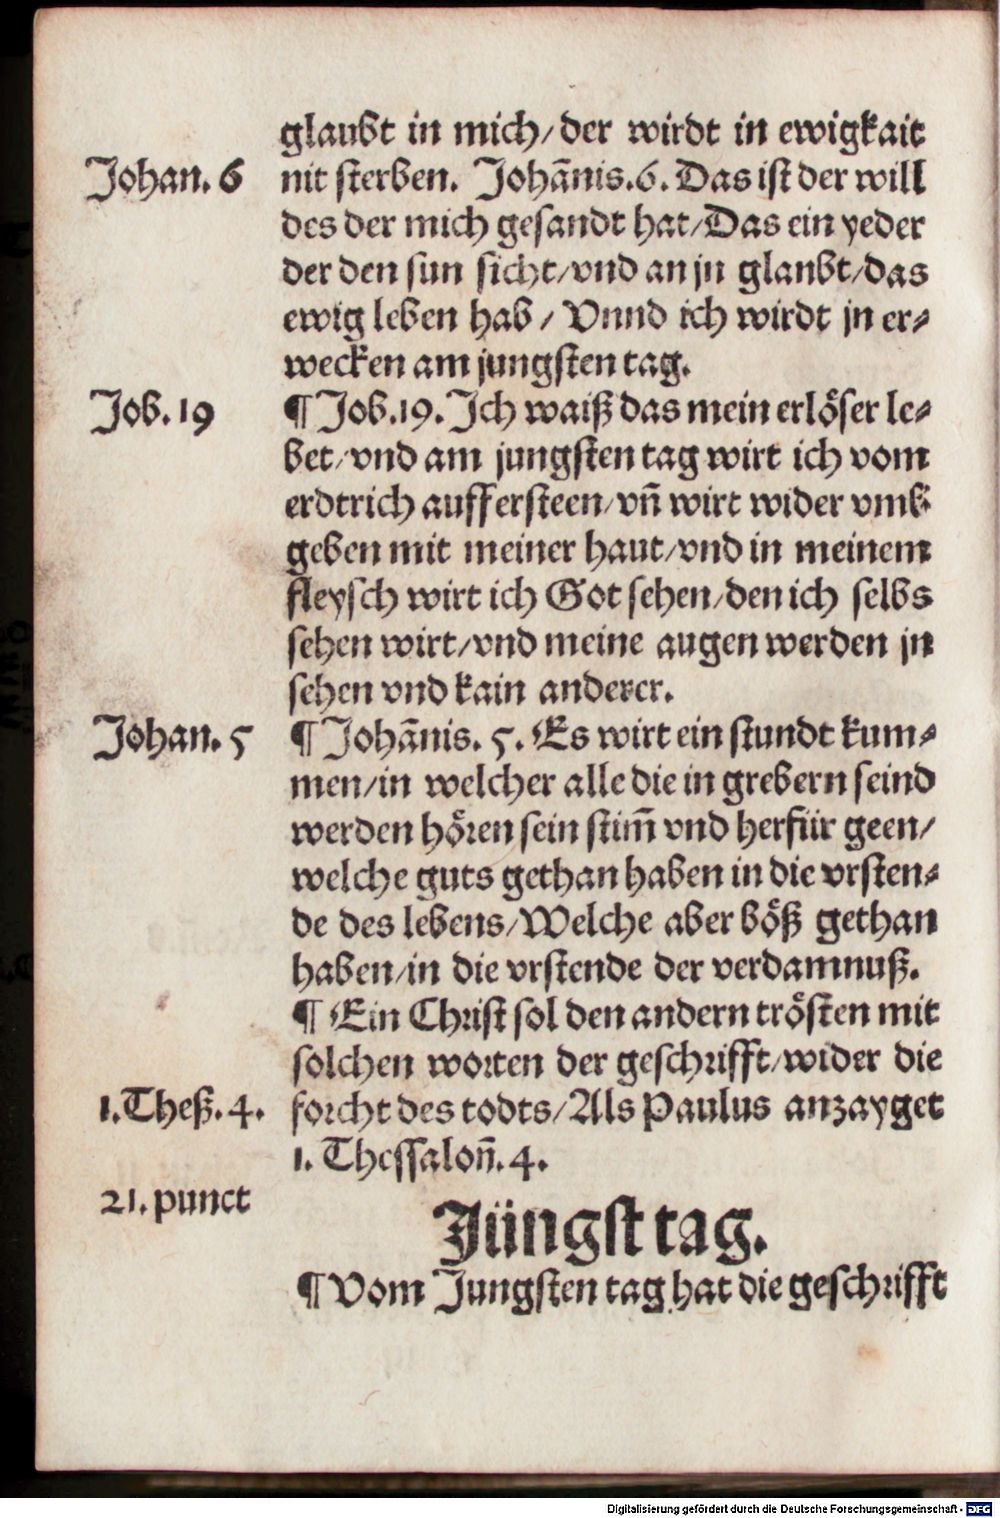 glaubt in mich/der wirdt in ewigkait
Johan. 6
nit sterben. Johãnis.6. Das ist der will
des der mich gesandt hat/Das ein yeder
der den sun sicht/vnd an jn glaubt/das
ewig leben hab/ Vnnd ich wirdt jn er⸗
wecken am jungsten tag.
Job. 19
¶ Job.19. Ich waiß das mein erlöser le⸗
bet/vnd am jungsten tag wirt ich vom
erdtrich aufferſteen/vñ wirt wider vmb
geben mit meiner haut/vnd in meinem
fleysch wirt ich Got sehen/den ich selbs
sehen wirt/vnd meine augen werden jn
sehen vnd kain anderer.
Johan. 5
¶ Johãnis. 5. Es wirt ein stundt kum⸗
men/in welcher alle die in grebern seind
werden hören sein stim̃ vnd herfür geen/
welche guts gethan haben in die vrsten⸗
de des lebens/Welche aber böß gethan
haben/in die vrstende der verdamnuß.
¶ Ein Christ sol den andern trösten mit
solchen worten der geschrifft/wider die
1.Theß.4.
forcht des todts/Als Paulus anzayget
1. Thessaloñ.4.
21. punct
Jüngst tag.
¶ Vom Jungsten tag hat die geschrifft
Digitalisierung gefördert durch die Deutsche Forschungsgemeinschaft - DFG